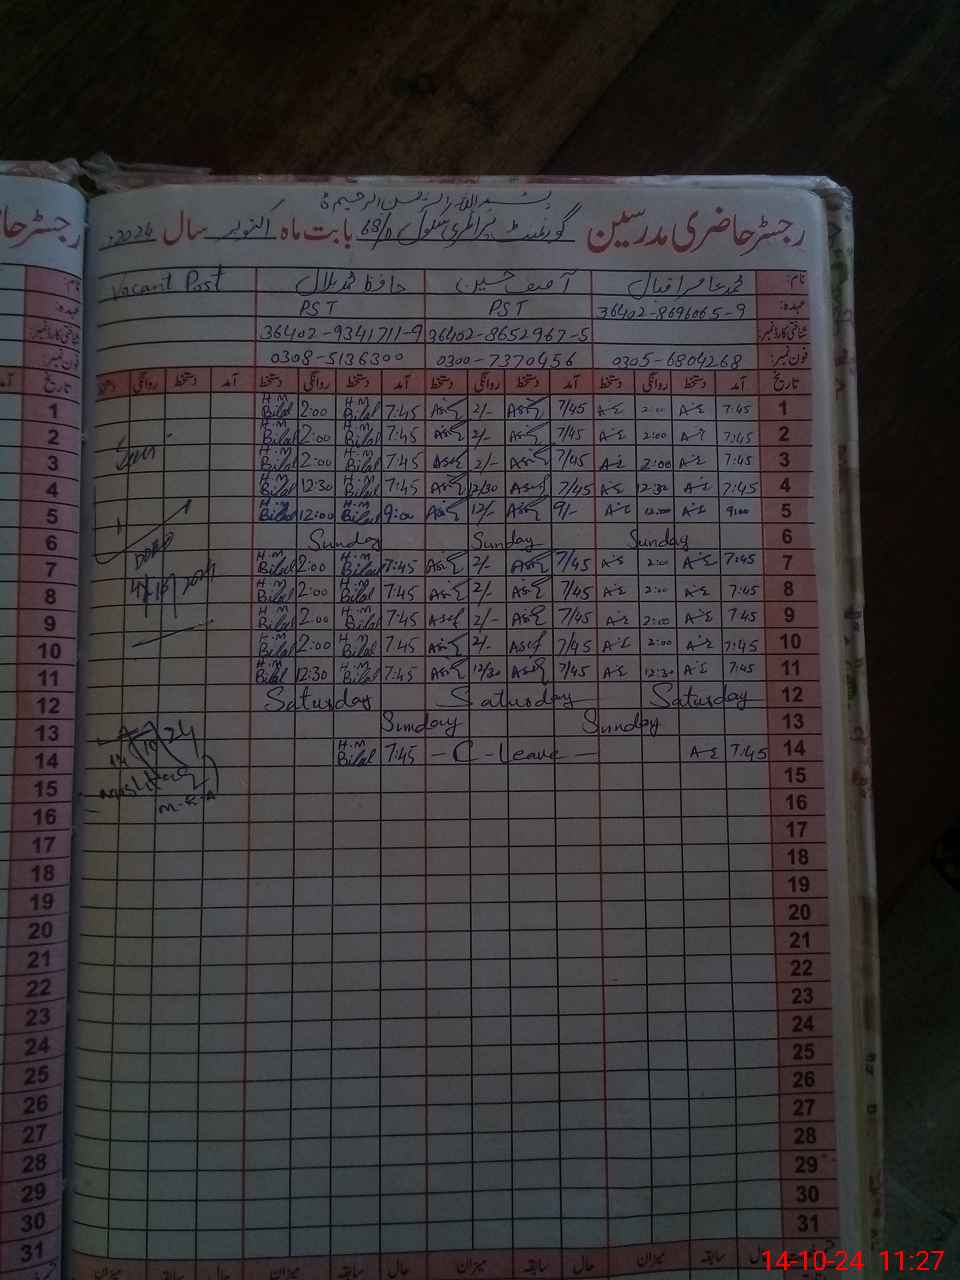 بسم اللہ الرحمن الرحیم
رجسٹر حاضری مدرسین گورنمنٹ پرائمری سکول 68/D بابت ماہ اکتوبر سال 2024ء
نام: محمد عامر اقبال آصف حسین حافظ محمد بلال Vacant Post
عہدہ: 36402-8696065-9 PST PST
شناختی کارڈ نمبر: 36402-8652967-5 36402-9341711-9
فون نمبر: 0305-6804268 0300-7370456 0308-5136300
تاریخ آمد دستخط روانگی دستخط آمد دستخط روانگی دستخط آمد دستخط روانگی دستخط آمد دستخط روانگی دستخط تاریخ
1 H.M Bilal 2:00 H.M Bilal 7:45 2/- 7/45 2:00 7:45 1
2 H.M Bilal 2:00 H.M Bilal 7:45 2/- 7/45 2:00 7:45 2
3 H.M Bilal 2:00 H.M Bilal 7:45 2/- 7/45 2:00 7:45 3
4 H.M Bilal 12:30 H.M Bilal 7:45 12/30 Asif 7/45 12:30 7:45 4
5 H.M Bilal 12:00 H.M Bilal 9:00 12/- 9/- 12:00 9:00 5
6 Sunday Sunday Sunday 6
7 H.M Bilal 2:00 H.M Bilal 7:45 2/- 7/45 2:00 7:45 7
8 H.M Bilal 2:00 H.M Bilal 7:45 2/- 7/45 2:00 7:45 8
9 H.M Bilal 2:00 H.M Bilal 7:45 Asif 2/- 7/45 2:00 7:45 9
10 H.M Bilal 2:00 H.M Bilal 7:45 2/- Asif 7/45 2:00 7:45 10
11 H.M Bilal 12:30 H.M Bilal 7:45 12/30 7/45 12:30 7:45 11
12 Saturday Saturday Saturday 12
13 Sunday Sunday 13
14 H.M Bilal 7:45 - C - Leave - 7:45 14
15 15
16 16
17 17
18 18
19 19
20 20
21 21
22 22
23 23
24 24
25 25
26 26
27 27
28 28
29 29
30 30
31 31
میزان سابقہ حال میزان سابقہ حال میزان سابقہ حال
14-10-24 11:27